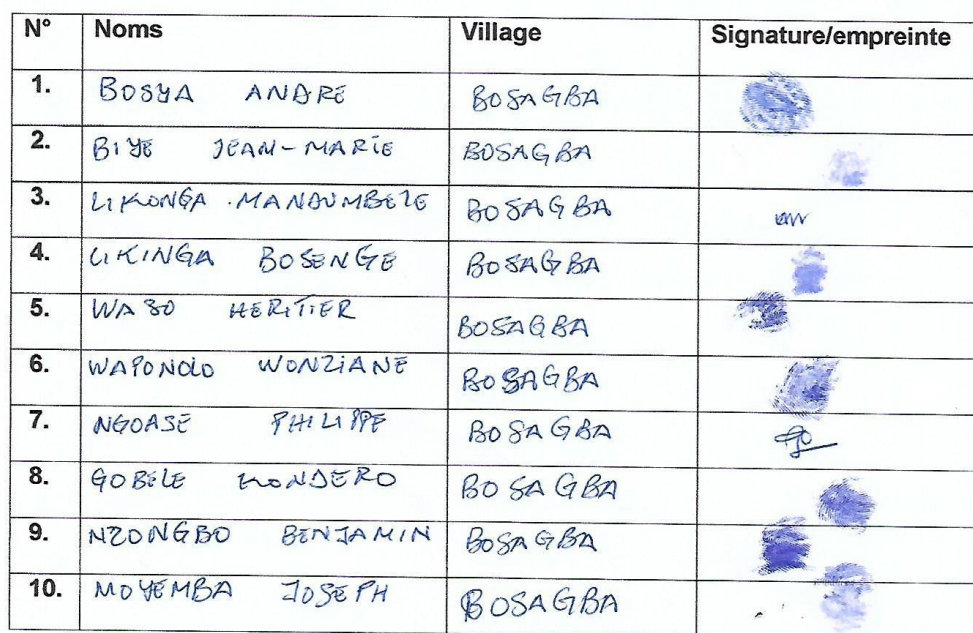 N° Noms Village Signature/empreinte
1. BOSYA ANDRE BOSAGBA
2. BIYE JEAN-MARIE BOSAGBA
3. LIKONGA MANDUMBELE BOSAGBA
4. LIKINGA BOSENGE BOSAGBA
5. WABO HERITIER BOSAGBA
6. WAPONOLO WONZIANE BOSAGBA
7. NGOASE PHILIPPE BOSAGBA
8. GOBELE KONDERO BOSAGBA
9. NZONGBO BENJAMIN BOSAGBA
10. MOYEMBA JOSEPH BOSAGBA